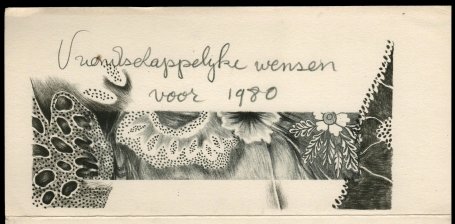 Vriendschappelyke wensen
voor 1980